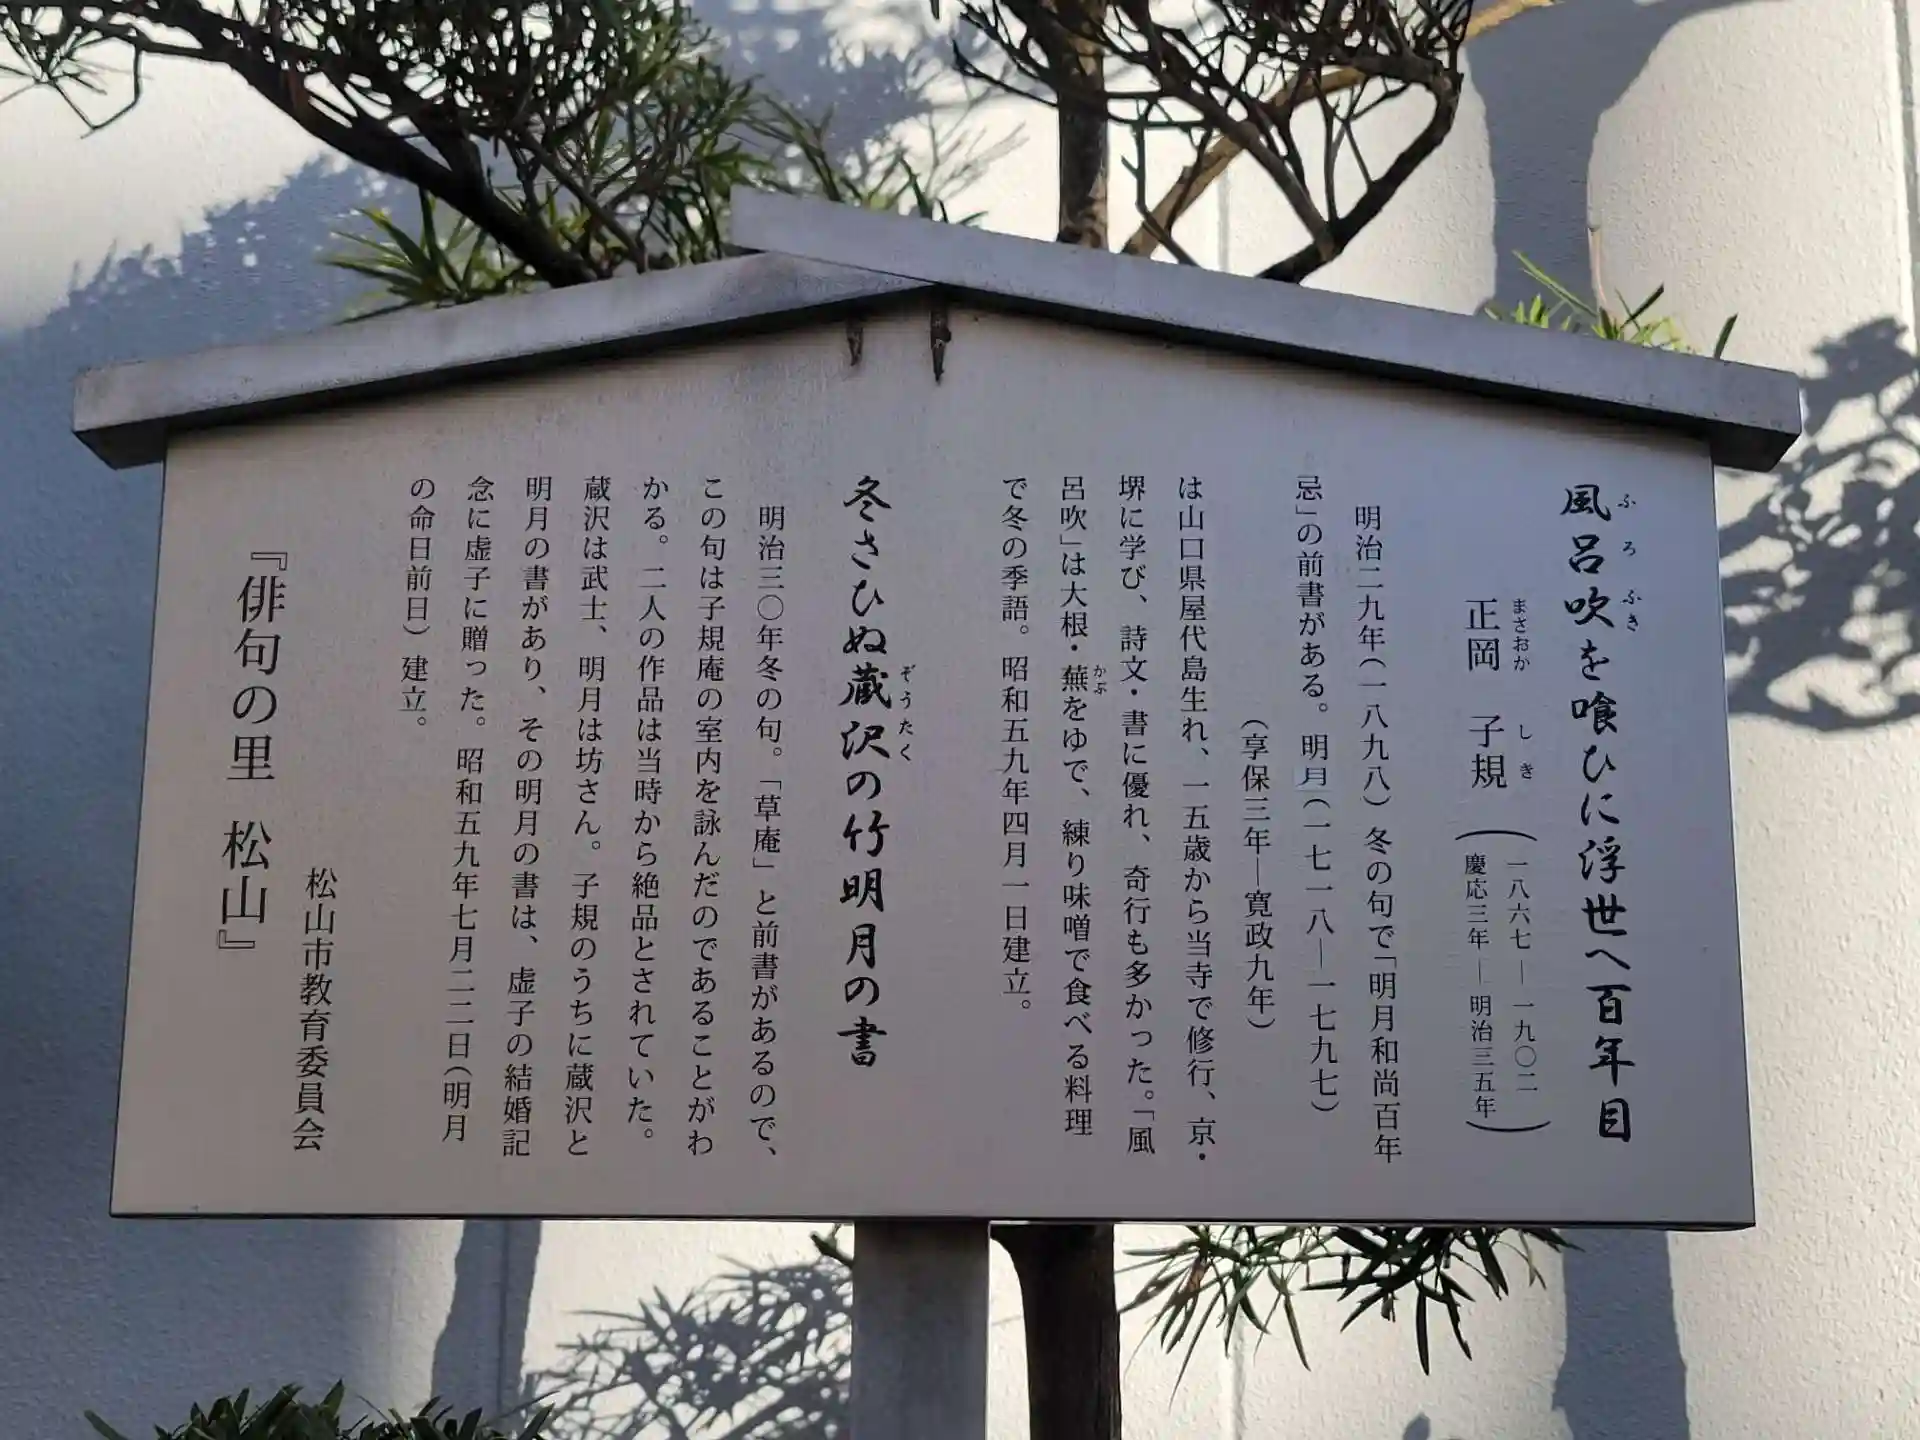 風呂吹を喰ひに浮世へ百年目
ふろふき
正岡 子規
まさおか しき
(一八六七―一九〇二
慶応三年―明治三五年)
明治二九年(一八九八)冬の句で「明月和尚百年
忌」の前書がある。明月(一七一八―一七九七)
(享保三年―寛政九年)
は山口県屋代島生れ、一五歳から当寺で修行、京・
堺に学び、詩文・書に優れ、奇行も多かった。「風
呂吹」は大根・蕪をゆで、練り味噌で食べる料理
かぶ
で冬の季語。昭和五九年四月一日建立。
冬さひぬ蔵沢の竹明月の書
ぞうたく
明治三〇年冬の句。「草庵」と前書があるので、
この句は子規庵の室内を詠んだのであることがわ
かる。二人の作品は当時から絶品とされていた。
蔵沢は武士、明月は坊さん。子規のうちに蔵沢と
明月の書があり、その明月の書は、虚子の結婚記
念に虚子に贈った。昭和五九年七月二二日(明月
の命日前日)建立。
松山市教育委員会
『俳句の里 松山』